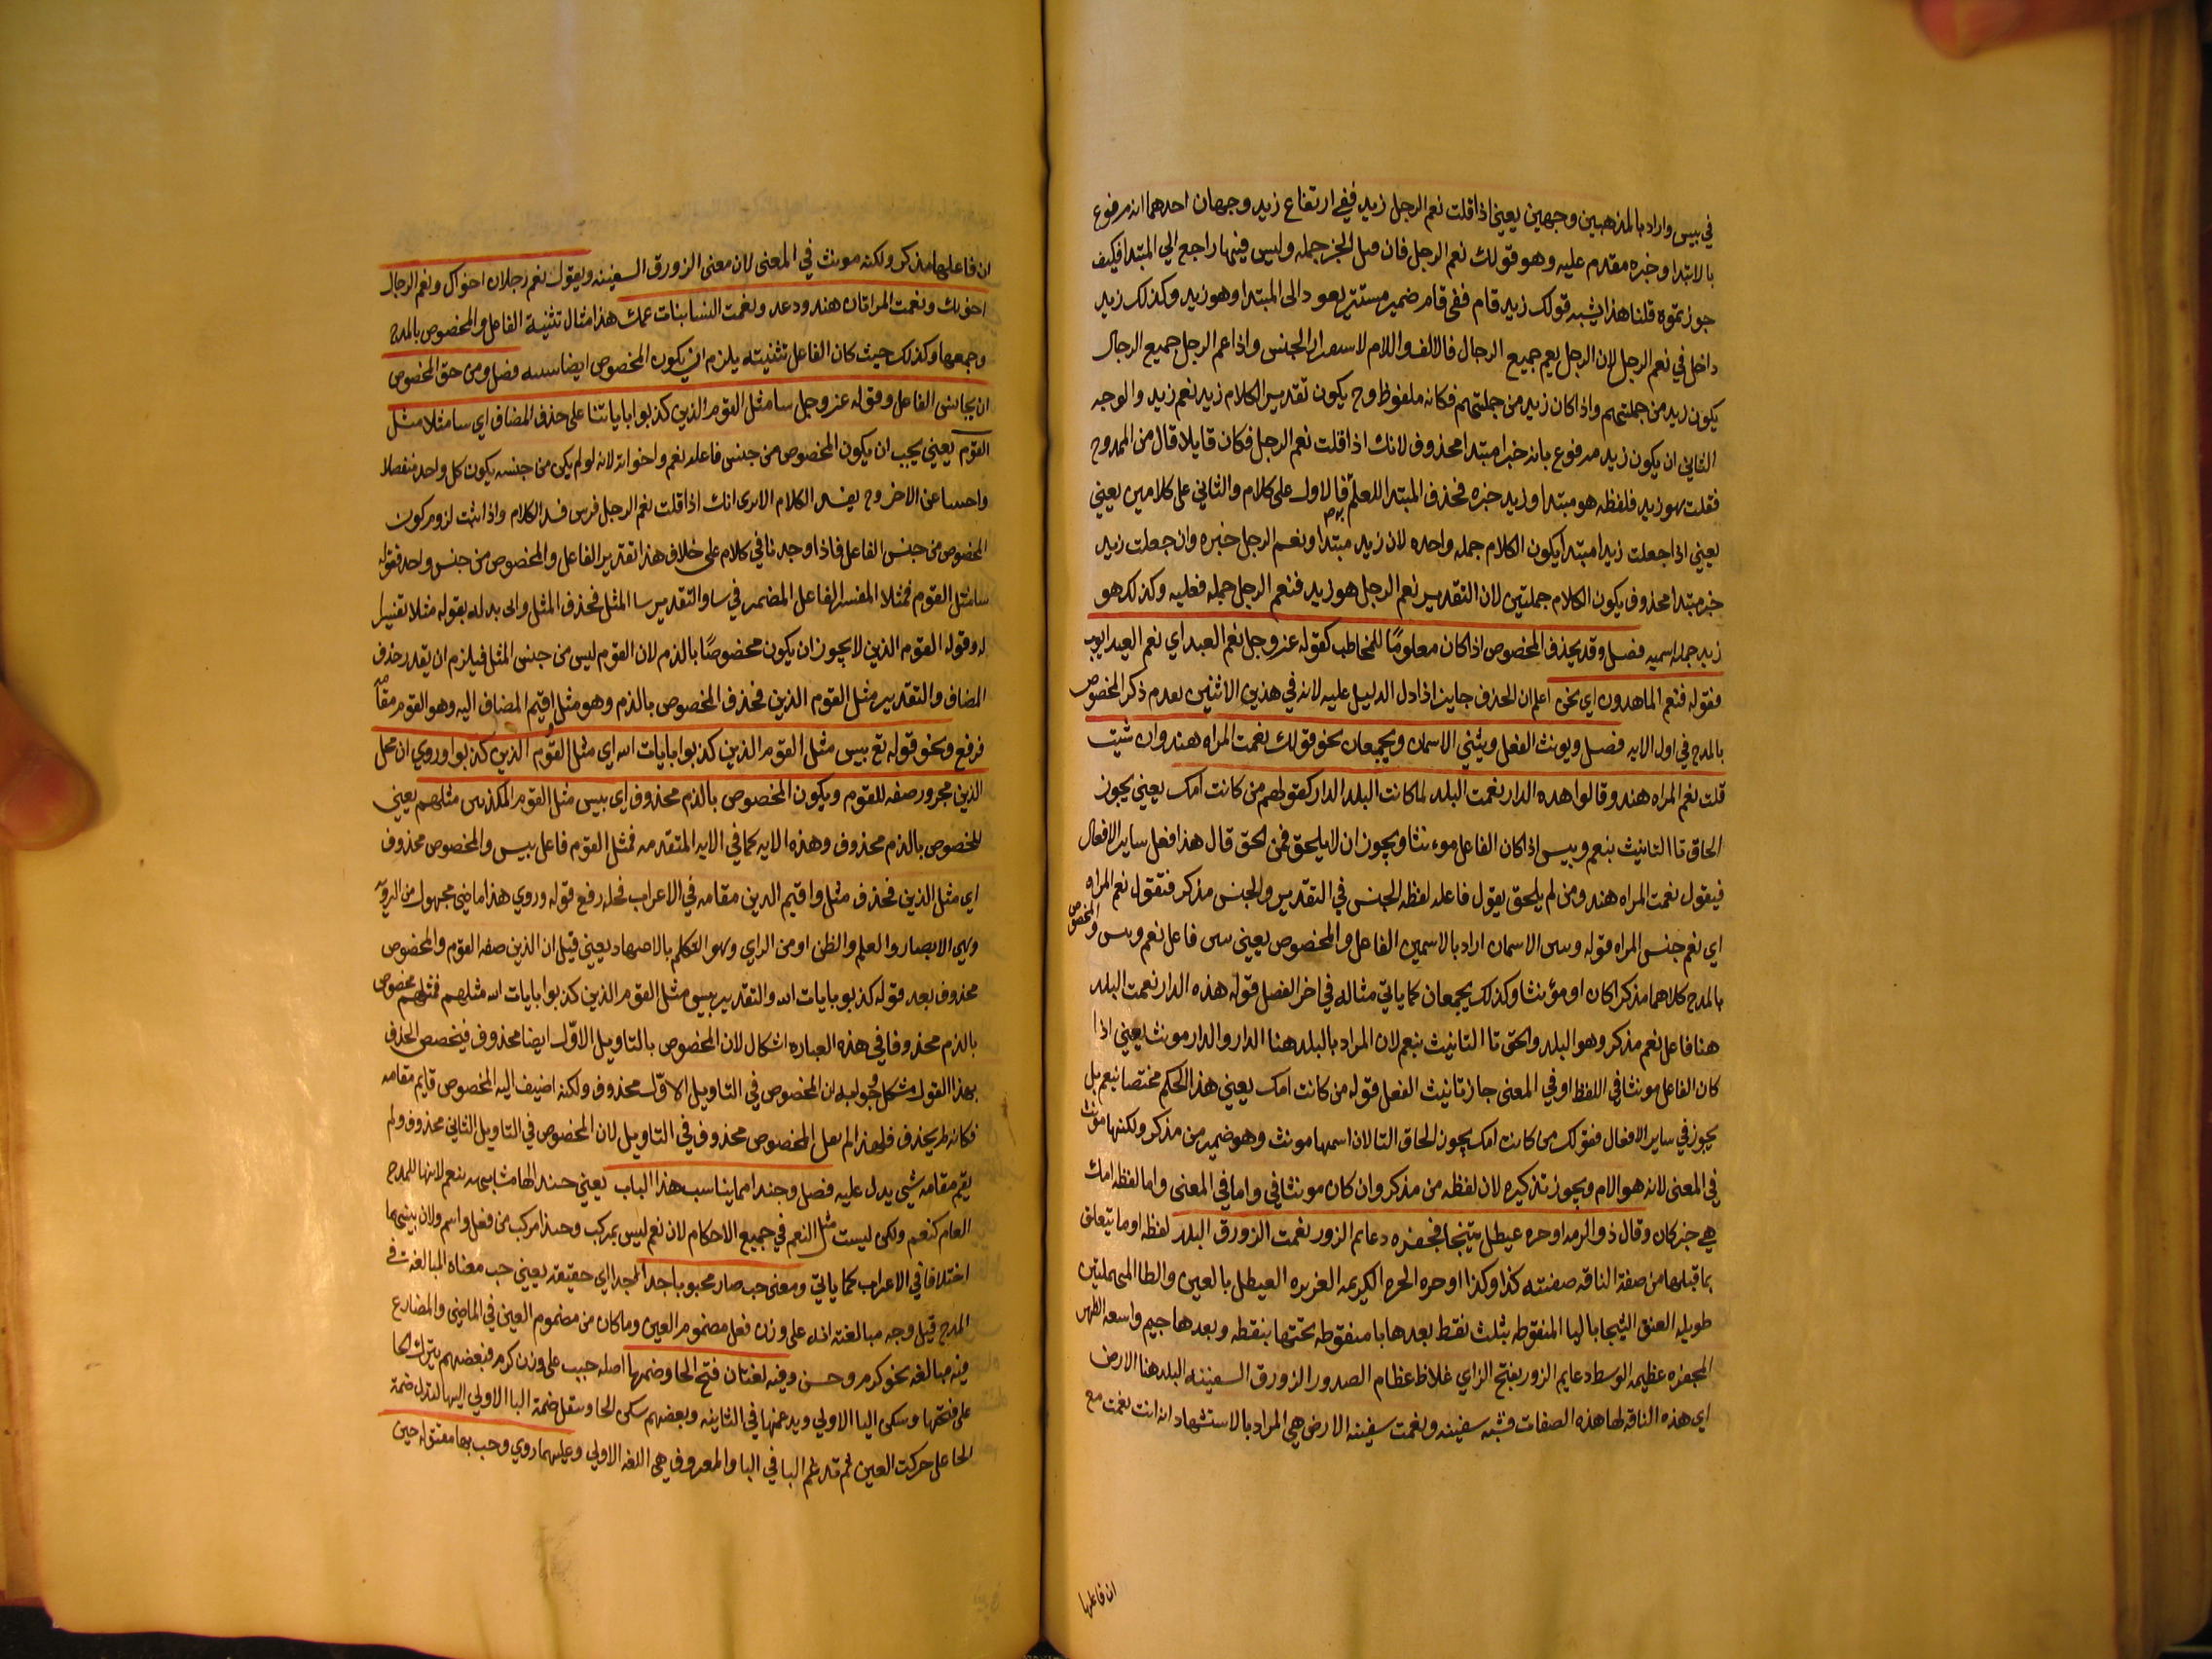 في بيس واراد بالمذهبين وجهين يعني اذا قلت نعم الرجل زيد ففي ارتفاع زيد وجهان احدهما انه مرفوع
بالابتدا وخبره مقدم عليه وهو قولك نعم الرجل فان قيل الخبر جمله وليس فيها راجع الي المبتدا فكيف
جوزتموه قلنا هذا يشبه قولك زيد قام ففي قام ضمير مستتر يعود الى المبتدا وهو زيد وكذلك زيد
داخل في نعم الرجل لان الرجل يعم جميع الرجال فالالف واللام لاستغراق الجنس واذا عم الرجل جميع الرجال
يكون زيد من جملتهم واذا كان زيد من جملتهم فكانه ملفوظ وح يكون تقدير الكلام زيد نعم زيد والوجه
الثاني ان يكون زيد مرفوع بانه خبر مبتدا محذوف لانك اذا قلت نعم الرجل فكان قايلا قال من الممدوح
فقلت هو زيد فلفظه هو مبتدا وزيد خبره فحذف المبتدا للعلم به فالاول على كلام والثاني على كلامين يعني
يعني اذا جعلت زيدا مبتدا يكون الكلام جمله واحده لان زيد مبتدا ونعم الرجل خبره وان جعلت زيد
خبر مبتدا محذوف يكون الكلام جملتين لان التقدير نعم الرجل هو زيد فنعم الرجل جمله فعليه وكذلك هو
زيد جمله اسميه فصل وقد يحذف المخصوص اذا كان معلومًا للمخاطب كقوله عز وجل نعم العبد اي نعم العبد ايوب
فقوله فنعم الماهدون اي نحن اعلم ان الحذف جايز اذا دل الدليل عليه لانه في هذين الاثنين بعدم ذكر المخصوص
بالمدح في اول الايه فصل ويونث الفعل ويثني الاسمان ويجمعان نحو قولك نعمت المراه هند وان شيت
قلت نعم المراه هند وقالوا هذه الدار نعمت البلد لما كانت البلد الدار كقولهم من كانت امك يعني يجوز
الحاق تا التانيث بنعم وبيس اذا كان الفاعل موءنثا ويجوز ان لا يلحق فمن الحق قال هذا فعل ساير الافعال
فيقول نعمت المراه هند ومن لم يلحق يقول فاعله لفظه الجنس في التقدير والجنس مذكر فتقول نعم المراه
اي نعم جنس المراه قوله وسى الاسمان اراد بالاسمين الفاعل والمخصوص يعني سى فاعل نعم وبس والمخصوص
بالمدح كلاهما مذكرا كان او مؤنثا وكذلك يجمعان كما ياتي مثاله في اخر الفصل قوله هذه الدار نعمت البلد
هنا فاعل نعم مذكر وهو البلد والحق تا التانيث بنعم لان المراد بالبلد هنا الدار والدار مونث يعني اذا
كان الفاعل مونثا في اللفظ او في المعنى جاز تانيث الفعل قوله من كانت امك يعني هذا الحكم مختصا بنعم بل
يجوز في ساير الافعال فقولك من كانت امك يجوز الحاق التا لان اسمها مونث وهو ضمير من مذكر ولكنها مونث
في المعنى لانه هو الام ويجوز تذكيره لان لفظه من مذكر وان كان مونثا في واما في المعنى واما لفظه امك
هي خبر كان وقال ذو الرمه او حره عيطل ثبجا مجفره دعايم الزور نعمت الزورق البلد لفظه او ما يتعلق
بما قبلها من صفة الناقه صفته كذا وكذا او حره الحره الكريمه الغزيره العيطل بالعين والطا المهملتين
طويله العنق الثبجا باليا المنقوطه بثلث نقط بعدها با منقوطه تحتها بنقطه وبعدها جيم واسعه الظهر
المجفره عظيمه الوسط دعايم الزور بفتح الزاي غلاظ عظام الصدور الزورق السفينه البلد هنا الارض
اي هذه الناقه لها هذه الصفات فشبه سفينه ونعمت سفينه الارض هي المراد بالاستشهاد انه انت نعمت مع
ان فاعلها
ان فاعلها مذكر ولكنه مونث في المعنى لان معنى الزورق السفينه ويقول نعم رجلان اخواك ونعم الرجال
اخوتك ونعمت المراتان هند ودعد ونعمت النسا بنات عمك هذا مثال تثنية الفاعل والمخصوص بالمدح
وجمعها وكذلك حيث كان الفاعل تثنيته يلزم ان يكون المخصوص ايضا فصل ومن حق المخصوص
ان يجانس الفاعل وقوله عز وجل سا مثل القوم الذين كذبوا باياتنا على حذف المضاف اي سا مثلا مثل
القوم يعني يجب ان يكون المخصوص من جنس فاعله نعم واخواته لانه لو لم يكن من جنسه يكون كل واحد منفصلا
واجنبيا عن الاخر وح يفسد الكلام الا ترى انك اذا قلت نعم الرجل فرس فسد الكلام واذا ثبت لزوم كون
المخصوص من جنس الفاعل فاذا وجدنا في كلام على خلاف هذا تقدير الفاعل والمخصوص من جنس واحد فقوله
سا مثل القوم فمثلا المفسر الفاعل المضمر في سا والتقدير سا المثل فحذف المثل واتى بدله بقوله مثلا تفسيرا
له وقوله القوم الذين لا يجوز ان يكون مخصوصًا بالذم لان القوم ليس من جنس المثل فيلزم ان يقدر حذف
المضاف والتقدير مثل القوم الذين فحذف المخصوص بالذم وهو مثل اقيم المضاف اليه وهو القوم مقامه
فرفع ونحو قوله تع بيس مثل القوم الذين كذبوا بايات الله اي مثل القوم الذين كذبوا وروي ان محل
الذين مجرور صفه للقوم ويكون المخصوص بالذم محذوف اي بيس مثل القوم المكذبين مثلهم يعني
المخصوص بالذم محذوف وهذه الايه كما في الايه المتقدمه فمثل القوم فاعل بيس والمخصوص محذوف
اي مثل الذين فحذف مثل واقيم الذين مقامه في الاعراب فحله رفع قوله وروي هذا ماضى مجهول من الرويه
وهي الابصار والعلم والظن او من الراي وهو التكلم بالاجتهاد يعني قيل ان الذين صفه القوم والمخصوص
محذوف بعد قوله كذبو بايات الله والتقدير بيس مثل القوم الذين كذبوا بايات الله مثلهم فمثلهم مخصوص
بالذم محذوفا في هذه العباره اشكال لان المخصوص بالتاويل الاوّل ايضا محذوف فيخصص الحذف
بهذا القول مشكل وجوابه ان المخصوص في التاويل الاوّل محذوف ولكنه اضيف اليه المخصوص قايم مقامه
فكانه لم يحذف فلهذا لم يقل المخصوص محذوف في التاويل لان المخصوص في التاويل الثاني محذوف ولم
يقم مقامه شي يدل عليه فصل وحبذا مما يناسب هذا الباب يعني حبذا لها مشابهه بنعم لانها للمدح
العام كنعم ولكن ليست مثل النعم في جميع الاحكام لان نعم ليس بمركب وحبذا مركب من فعل واسم ولان بينهما
اختلافا في الاعراب كما ياتي ومعنى حب صار محبوبا جدا الجدا اي حقيقه يعني حب معناه المبالغه في
المدح قيل وجه مبالغته انه على وزن فعل مضموم العين وما كان من مضموم العين في الماضي والمضارع
فيه مبالغه نحو كرم وحسن وفيه لغتان فتح الحا وضمها اصله حبب على وزن كرم فبعضهم يترك الحا
على فتحتها وسكن البا الاولي ويدغمها في الثانيه وبعضهم سكن الحا ونقل ضمة البا الاولي اليها لتدل ضمة
الحا على حركت العين ثم تدغم البا في البا والمعروف هي اللغه الاولي وعليهما روي وحب بها مقتوله حين